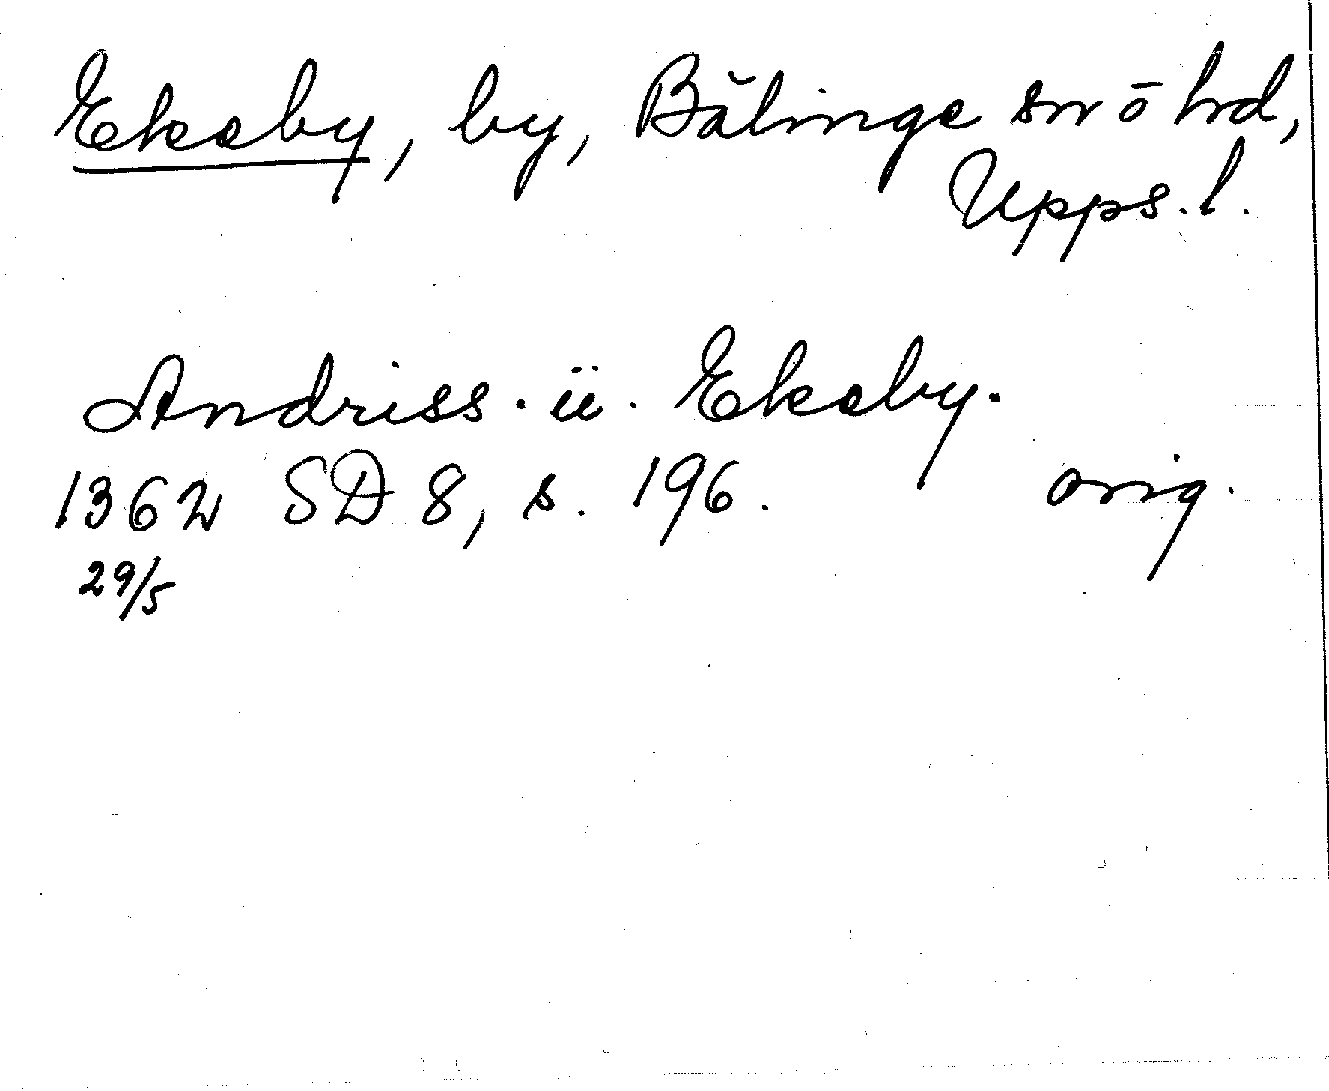 Ekeby, by, Bälinge sn o hd,
Upps. l.
Andriss . ii . Ekeby.
1362 SD 8, s. 196. orig.
29/5